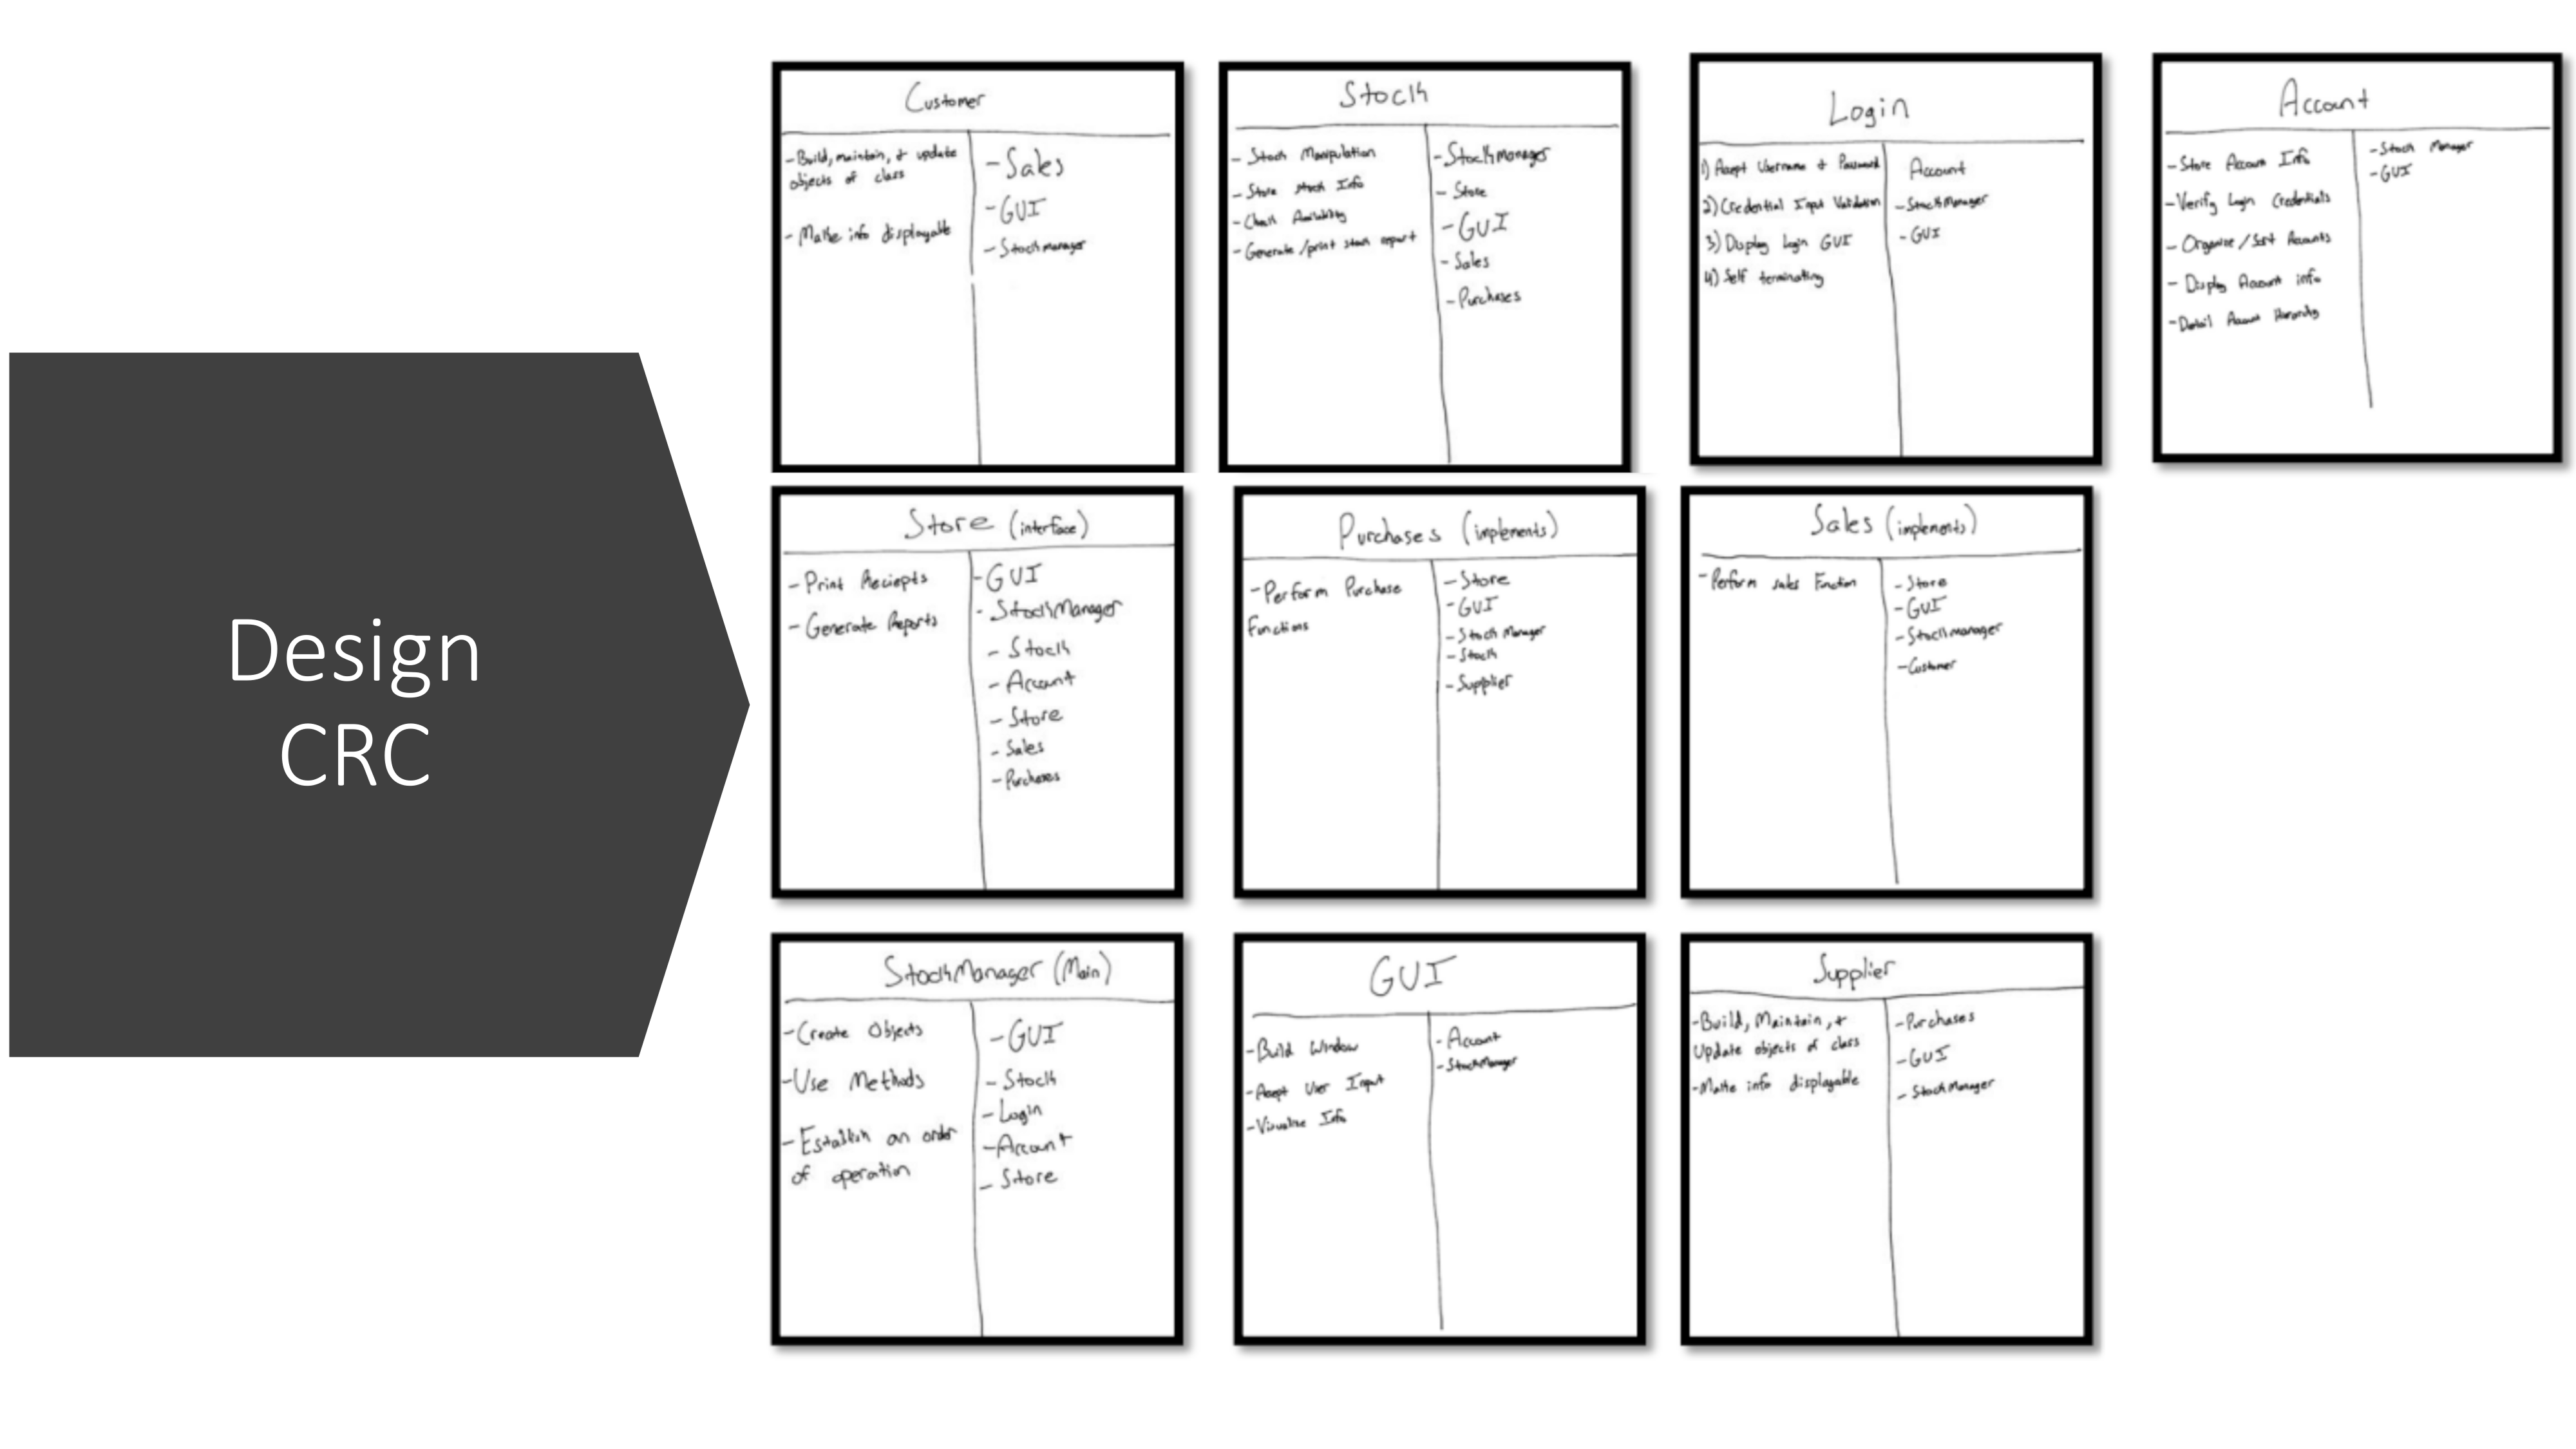 Design
CRC
Customer
- Build, maintain, + update
objects of class
- Make info displayable
- Sales
- GUI
- Stockmanager
Stock
- Stock Manipulation
- Store stock Info
- Check Availability
- Generate/print stock report
- StockManager
- Store
- GUI
- Sales
- Purchases
Login
1) Accept Username + Password
2) Credential Input Validation
3) Display Login GUI
4) Self terminating
Account
- StockManager
- GUI
Account
- Store Account Info
- Verify Login Credentials
- Organize/Sort Accounts
- Display Account info
- Detail Account Hierarchy
- Stock Manager
- GUI
Store (interface)
- Print Reciepts
- Generate Reports
- GUI
- StockManager
- Stock
- Account
- Store
- Sales
- Purchases
Purchases (implements)
- Perform Purchase
Functions
- Store
- GUI
- Stock Manager
- Stock
- Supplier
Sales (implements)
- Perform sales Function
- Store
- GUI
- Stockmanager
- Customer
StockManager (Main)
- Create Objects
- Use Methods
- Establish an order
of operation
- GUI
- Stock
- Login
- Account
- Store
GUI
- Build Window
- Accept User Input
- Visualize Info
- Account
- StockManager
Supplier
- Build, Maintain, +
Update objects of class
- Make info displayable
- Purchases
- GUI
- StockManager